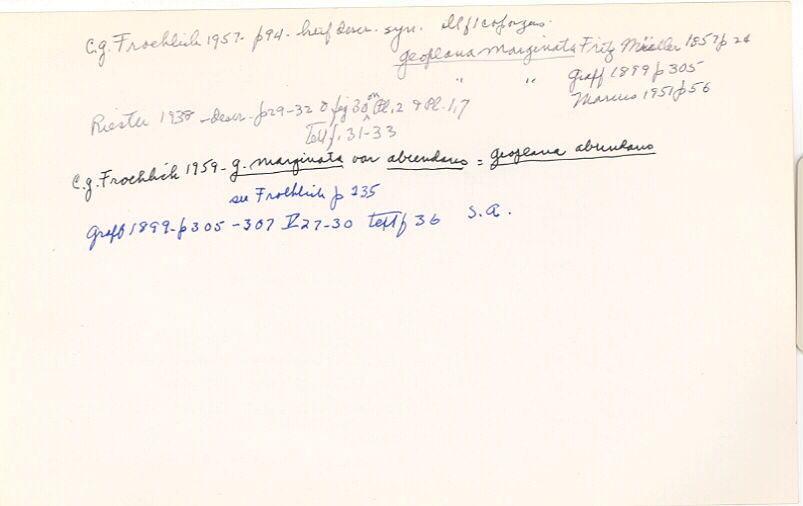 C.g. Froehlich 1957- p94- brief descr. syn.
Geoplana marginata Fritz Müller 1857 p 24
" " Graff 1899 p 305
Marcus 1951 p 56
Riester 1938 - descr - p29-32 & fig 30 on Pl. 2 & Pl. 1,7
Textf. 31-33
C.g. Froehlich 1959- g. marginata var abundans = geoplana abundans
see Froehlich p 235
Graff 1899- p 305 - 307 V 27-30 Textf 36 S.A.